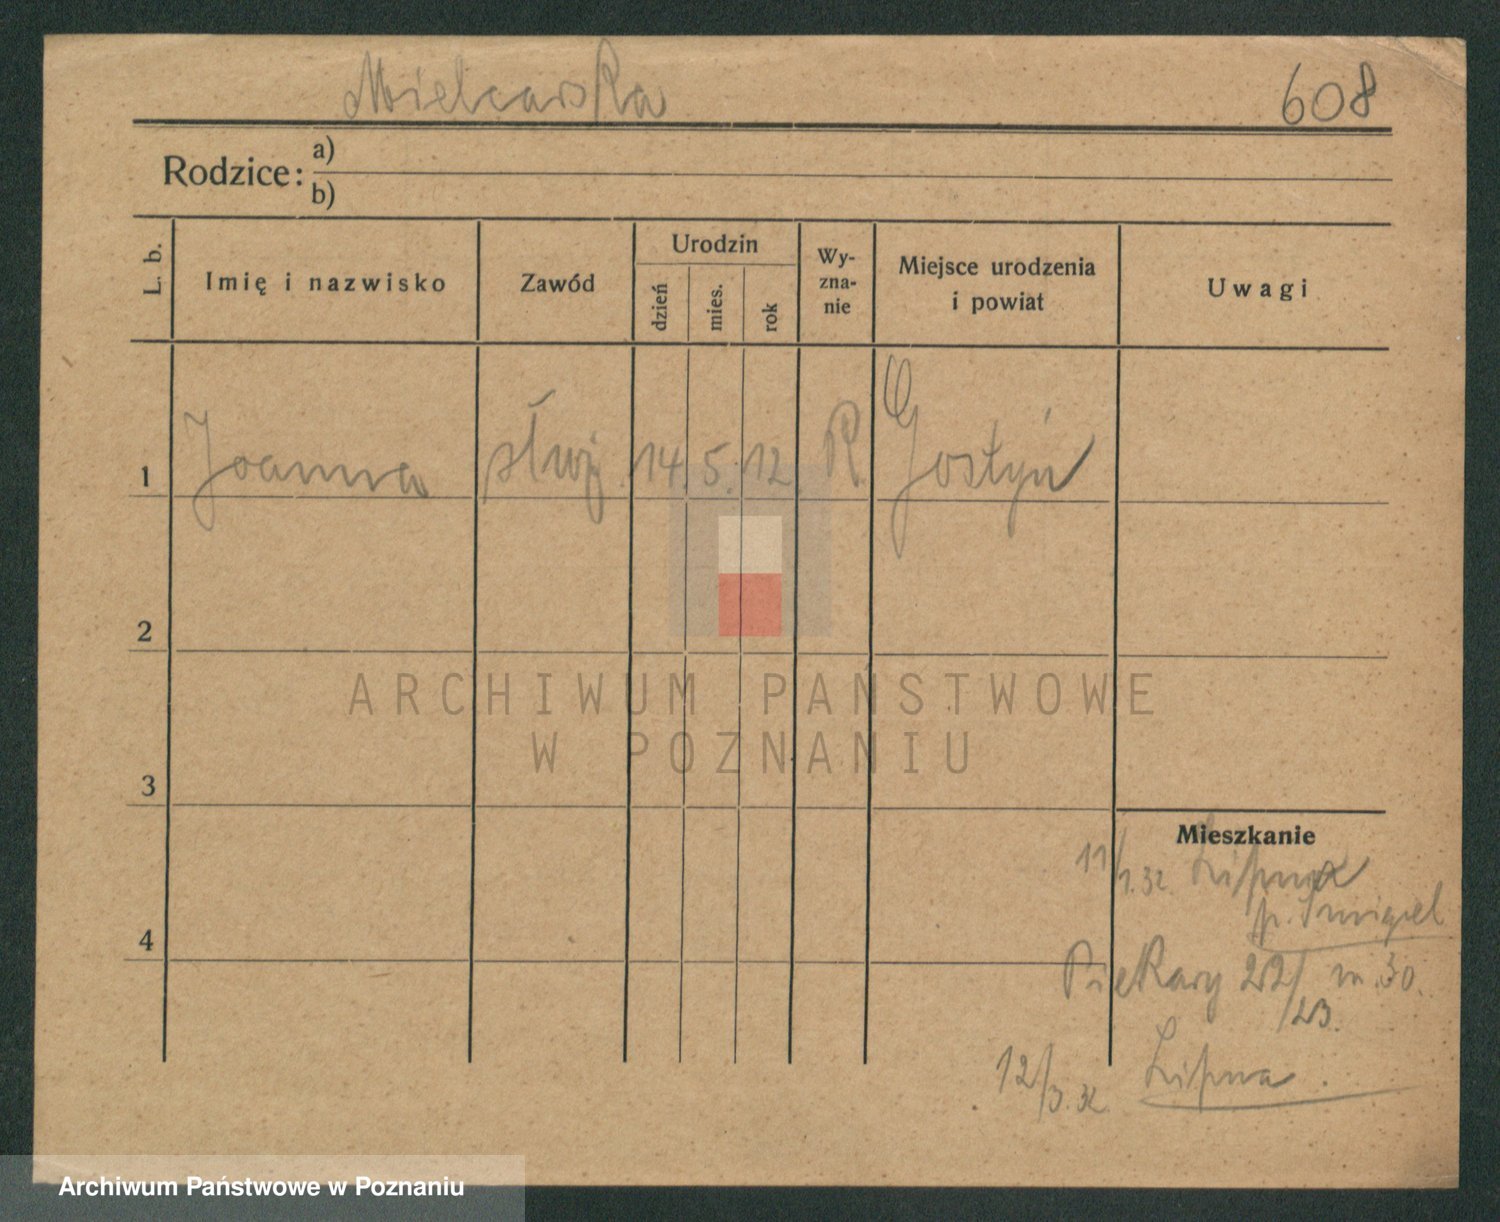 Mielcarska 608
Rodzice: a)
b)
L. b. Imię i nazwisko Zawód Urodzin dzień mies. rok Wy-zna-nie Miejsce urodzenia i powiat Uwagi
1 Joanna służ. 14. 5. 12. R. Gostyń
2
ARCHIWUM PAŃSTWOWE
W POZNANIU
3
Mieszkanie
11/1.32. Lipna
p. Śmigiel
4
Piekary 22/23. m. 30.
12/3.32. Lipna.
Archiwum Państwowe w Poznaniu